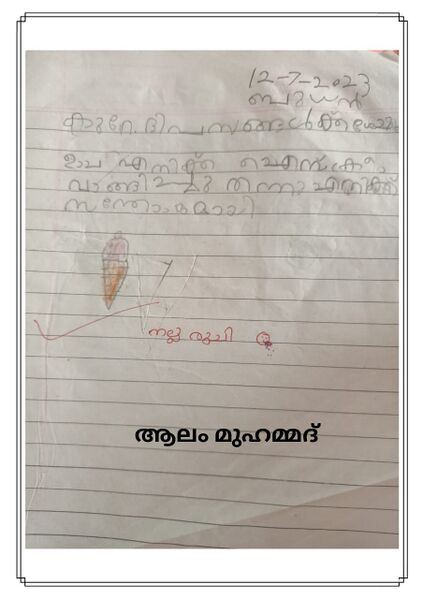 12-7-2023
ബുധൻ
കുറേ ദിപസങ്ങൾക്ക് ശേഷം
ഉപ്പ എനിക്ക് ഐസ്ക്രീം
വാങ്ങിച്ചു തന്നു എനിക്ക്
സന്തോഷമായി
നല്ല രുചി
ആലം മുഹമ്മദ്